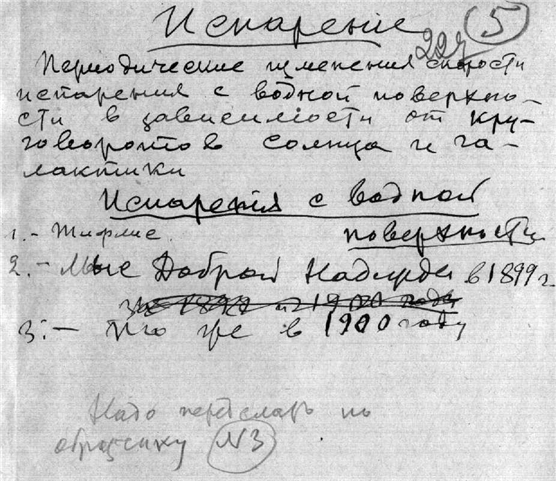 Испарение 5
Периодические изменения скорости
испарения с водной поверхно-
сти в зависимости от кру-
говоротов солнца и га-
лактики
Испарения с водной
поверхности
1.- Тифлис.
2.- Мыс Доброй Надежды в 1899 г.
за 1899 и 1900 года
3.- то же в 1900 году
Надо переслать по
образчику N3